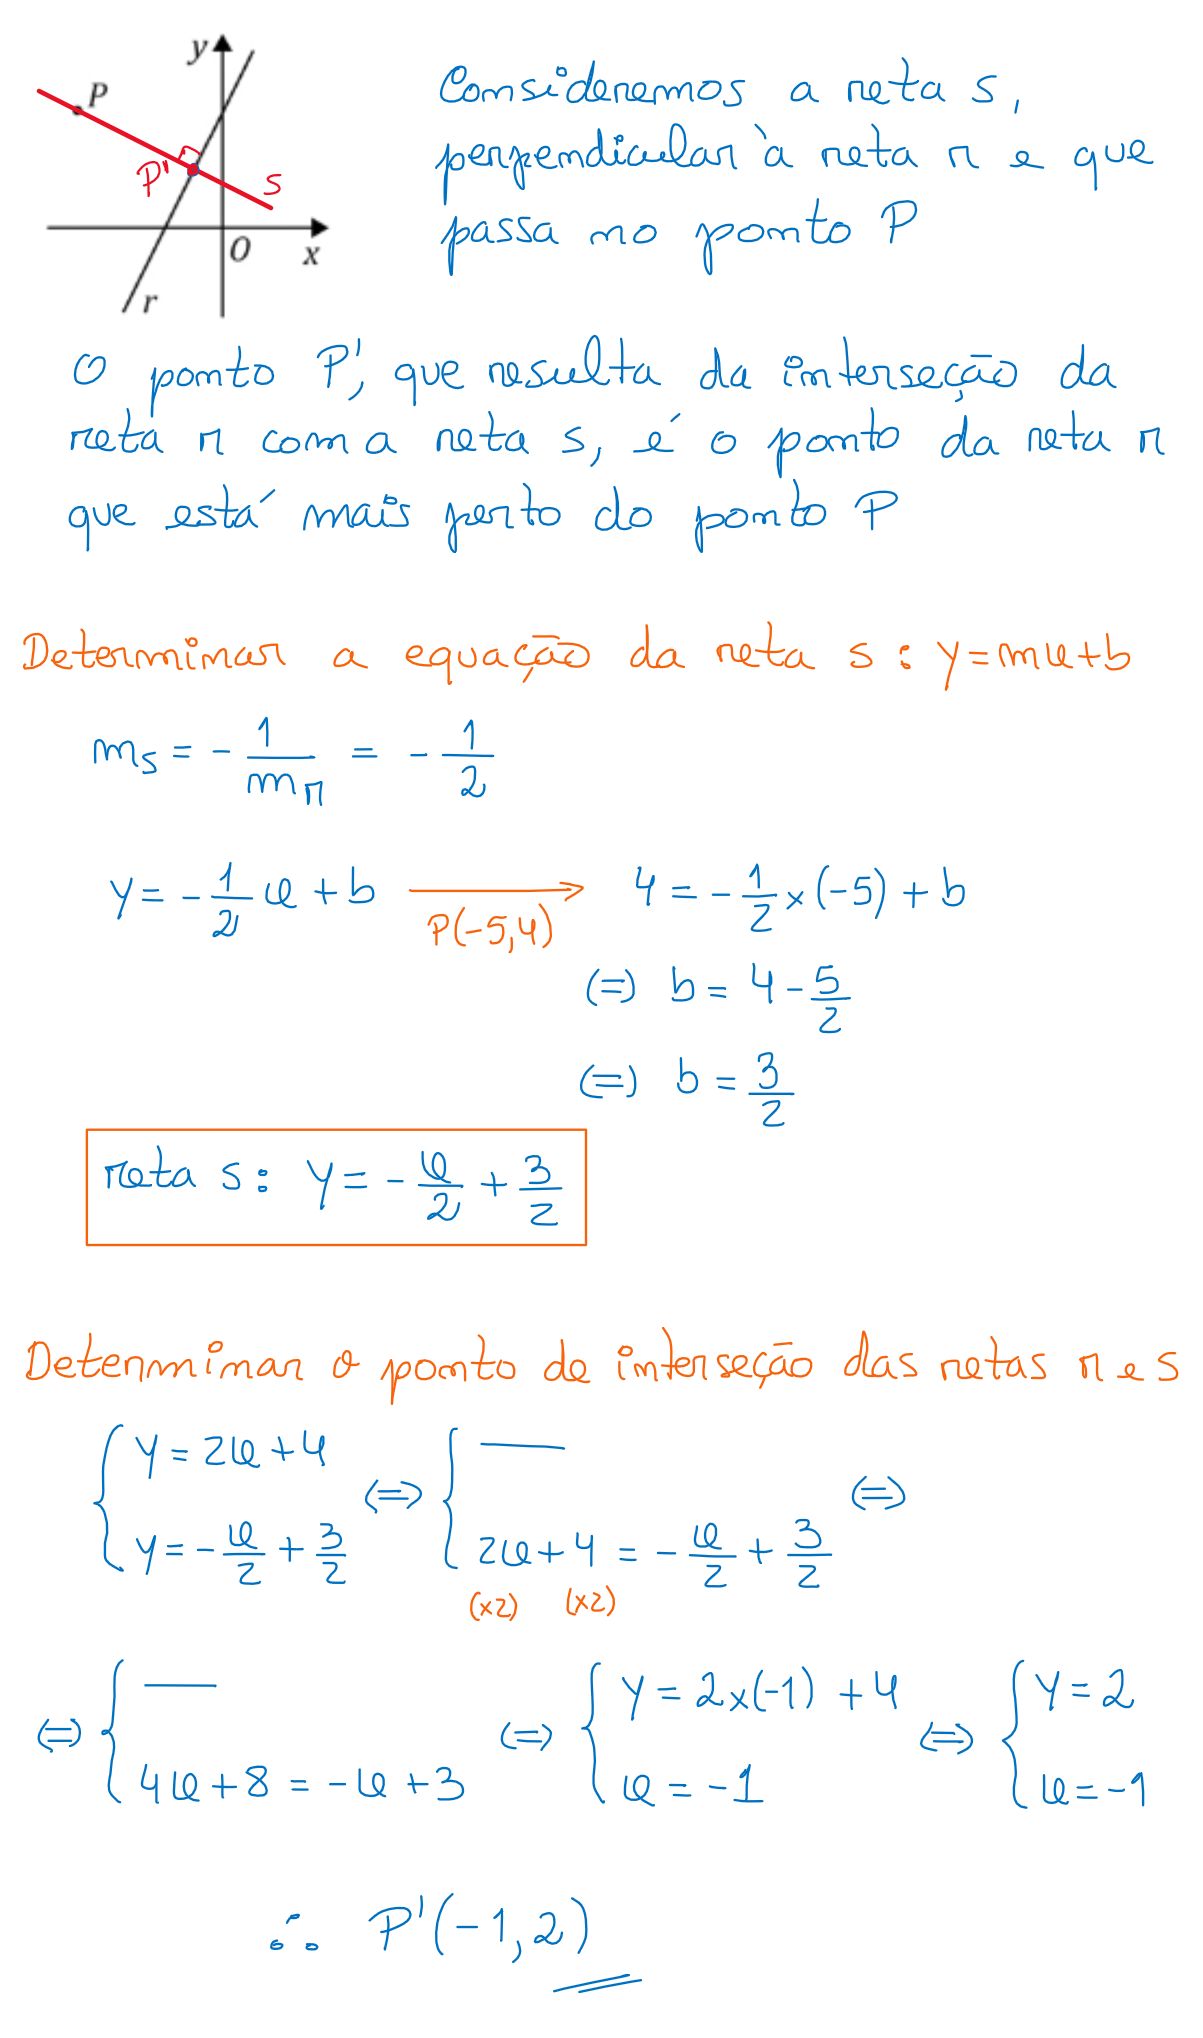 y
P
P'
s
O
x
r
Consideremos a reta s,
perpendicular à reta r e que
passa no ponto P
O ponto P', que resulta da interseção da
reta r com a reta s, é o ponto da reta r
que está mais perto do ponto P
Determinar a equação da reta s: y=mx+b
ms = - 1/mr = - 1/2
y = - 1/2 x + b → P(-5,4) 4 = - 1/2 × (-5) + b
(=) b = 4 - 5/2
(=) b = 3/2
reta s: y = - x/2 + 3/2
Determinar o ponto de interseção das retas r e s
{ y = 2x + 4 (=) { —— (=)
{ y = - x/2 + 3/2 { 2x + 4 = - x/2 + 3/2
(×2) (×2)
(=) { —— (=) { y = 2×(-1) + 4 (=) { y = 2
{ 4x + 8 = -x + 3 { x = -1 { x = -1
∴ P'(-1,2)